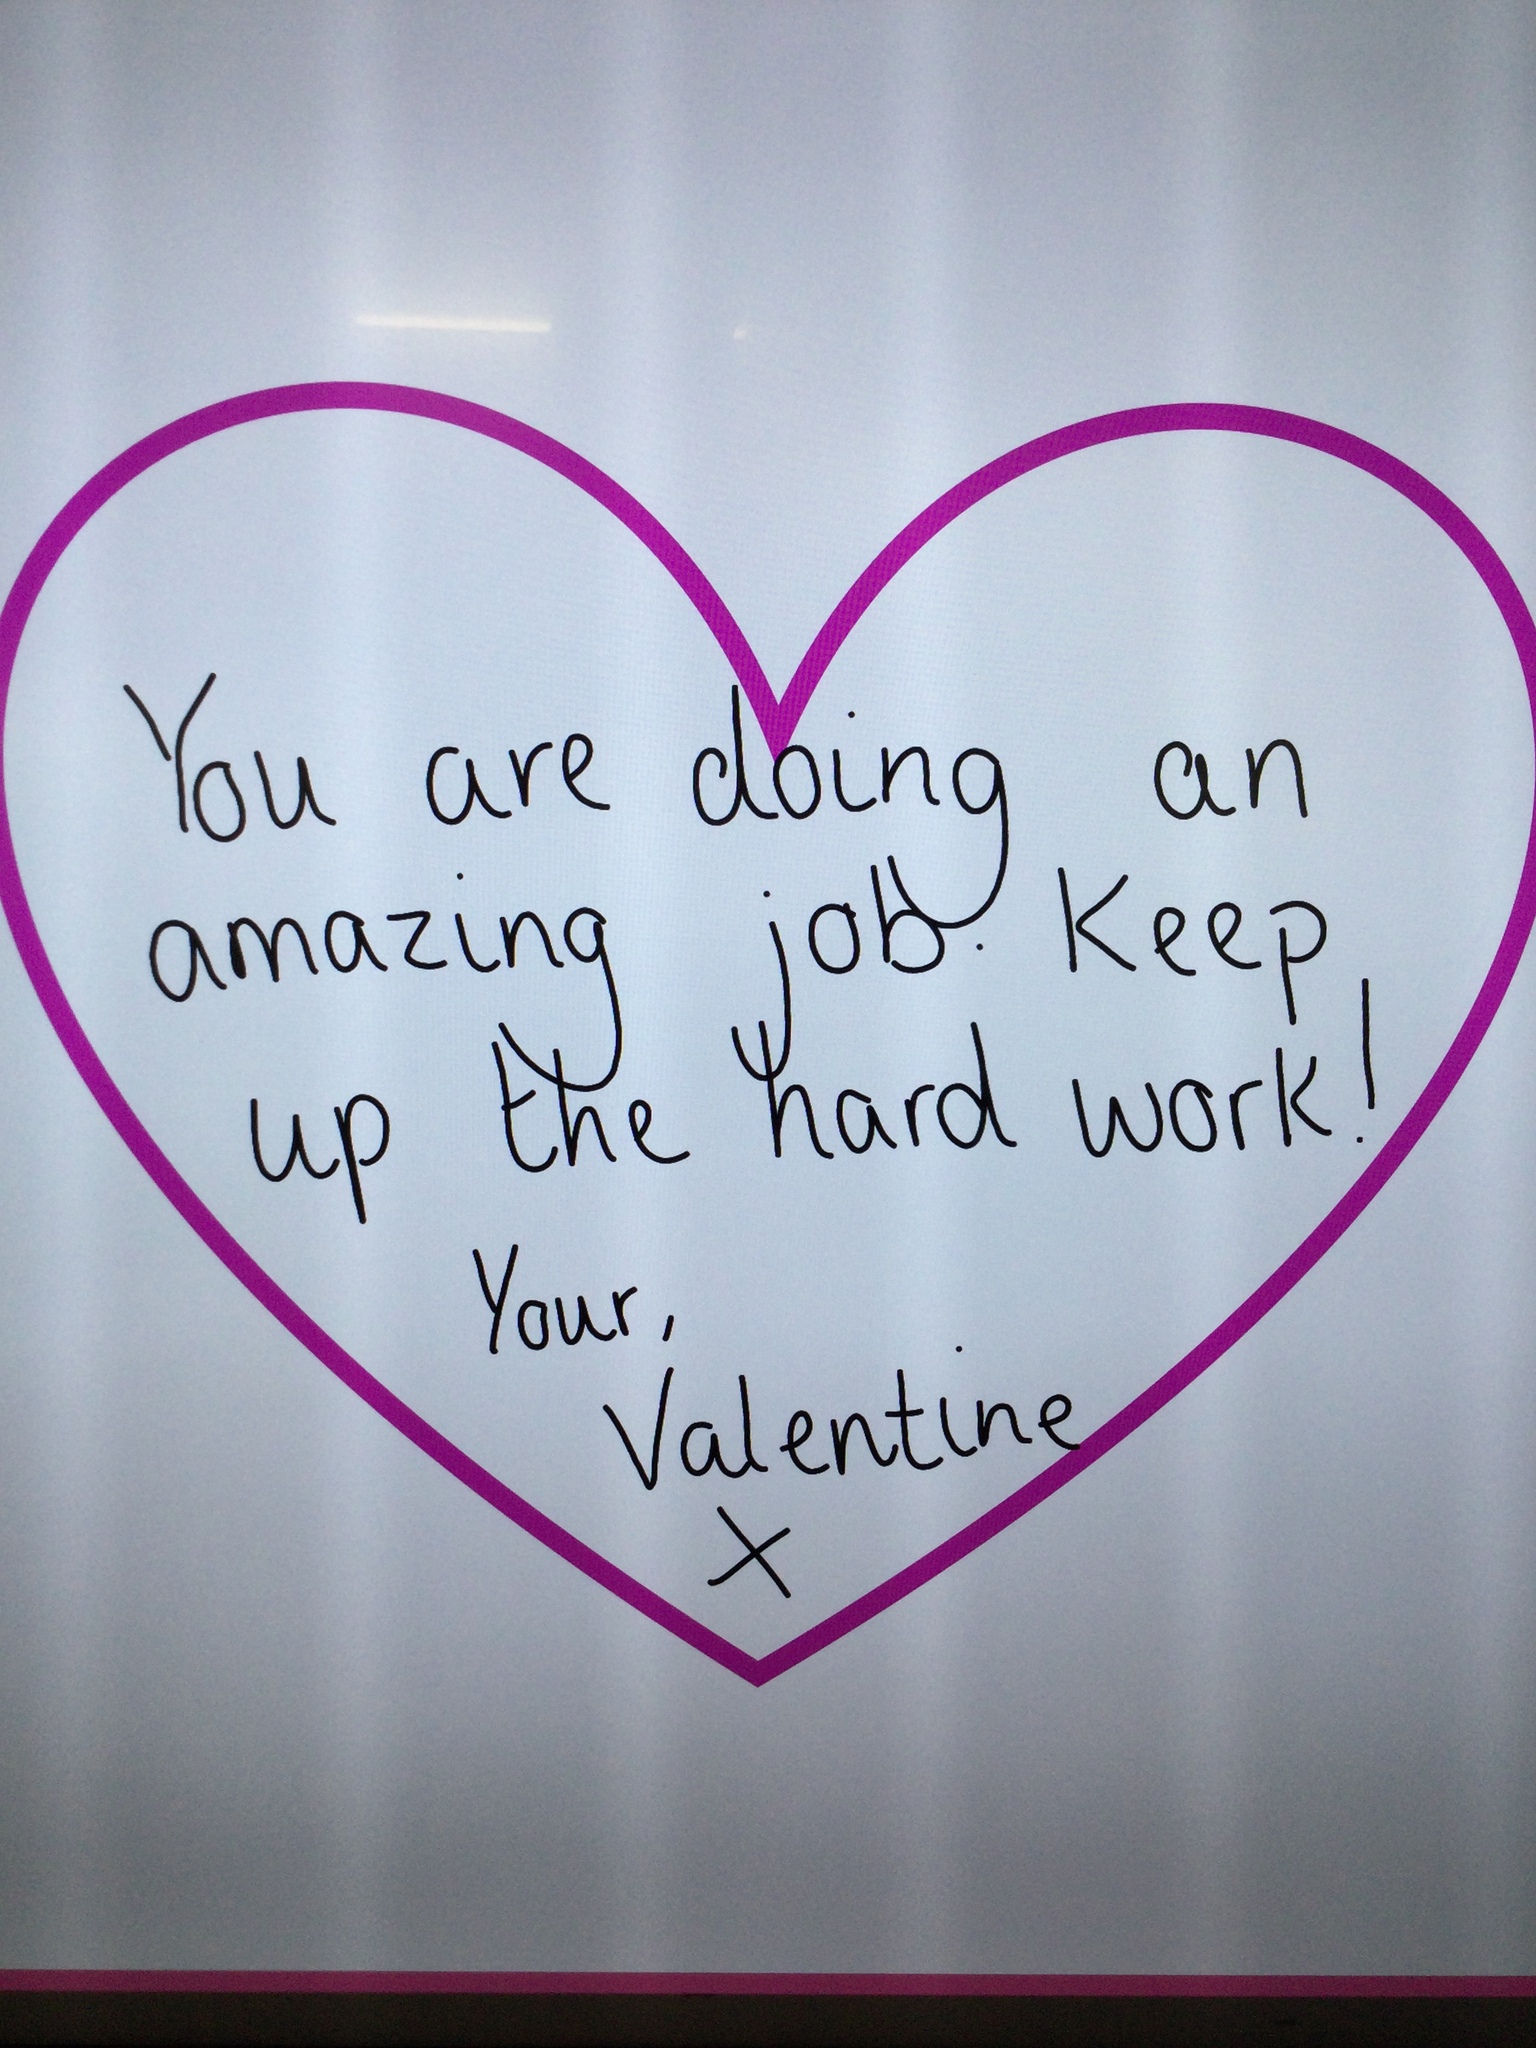 You are doing an
amazing job. Keep
up the hard work!
Your,
Valentine
x